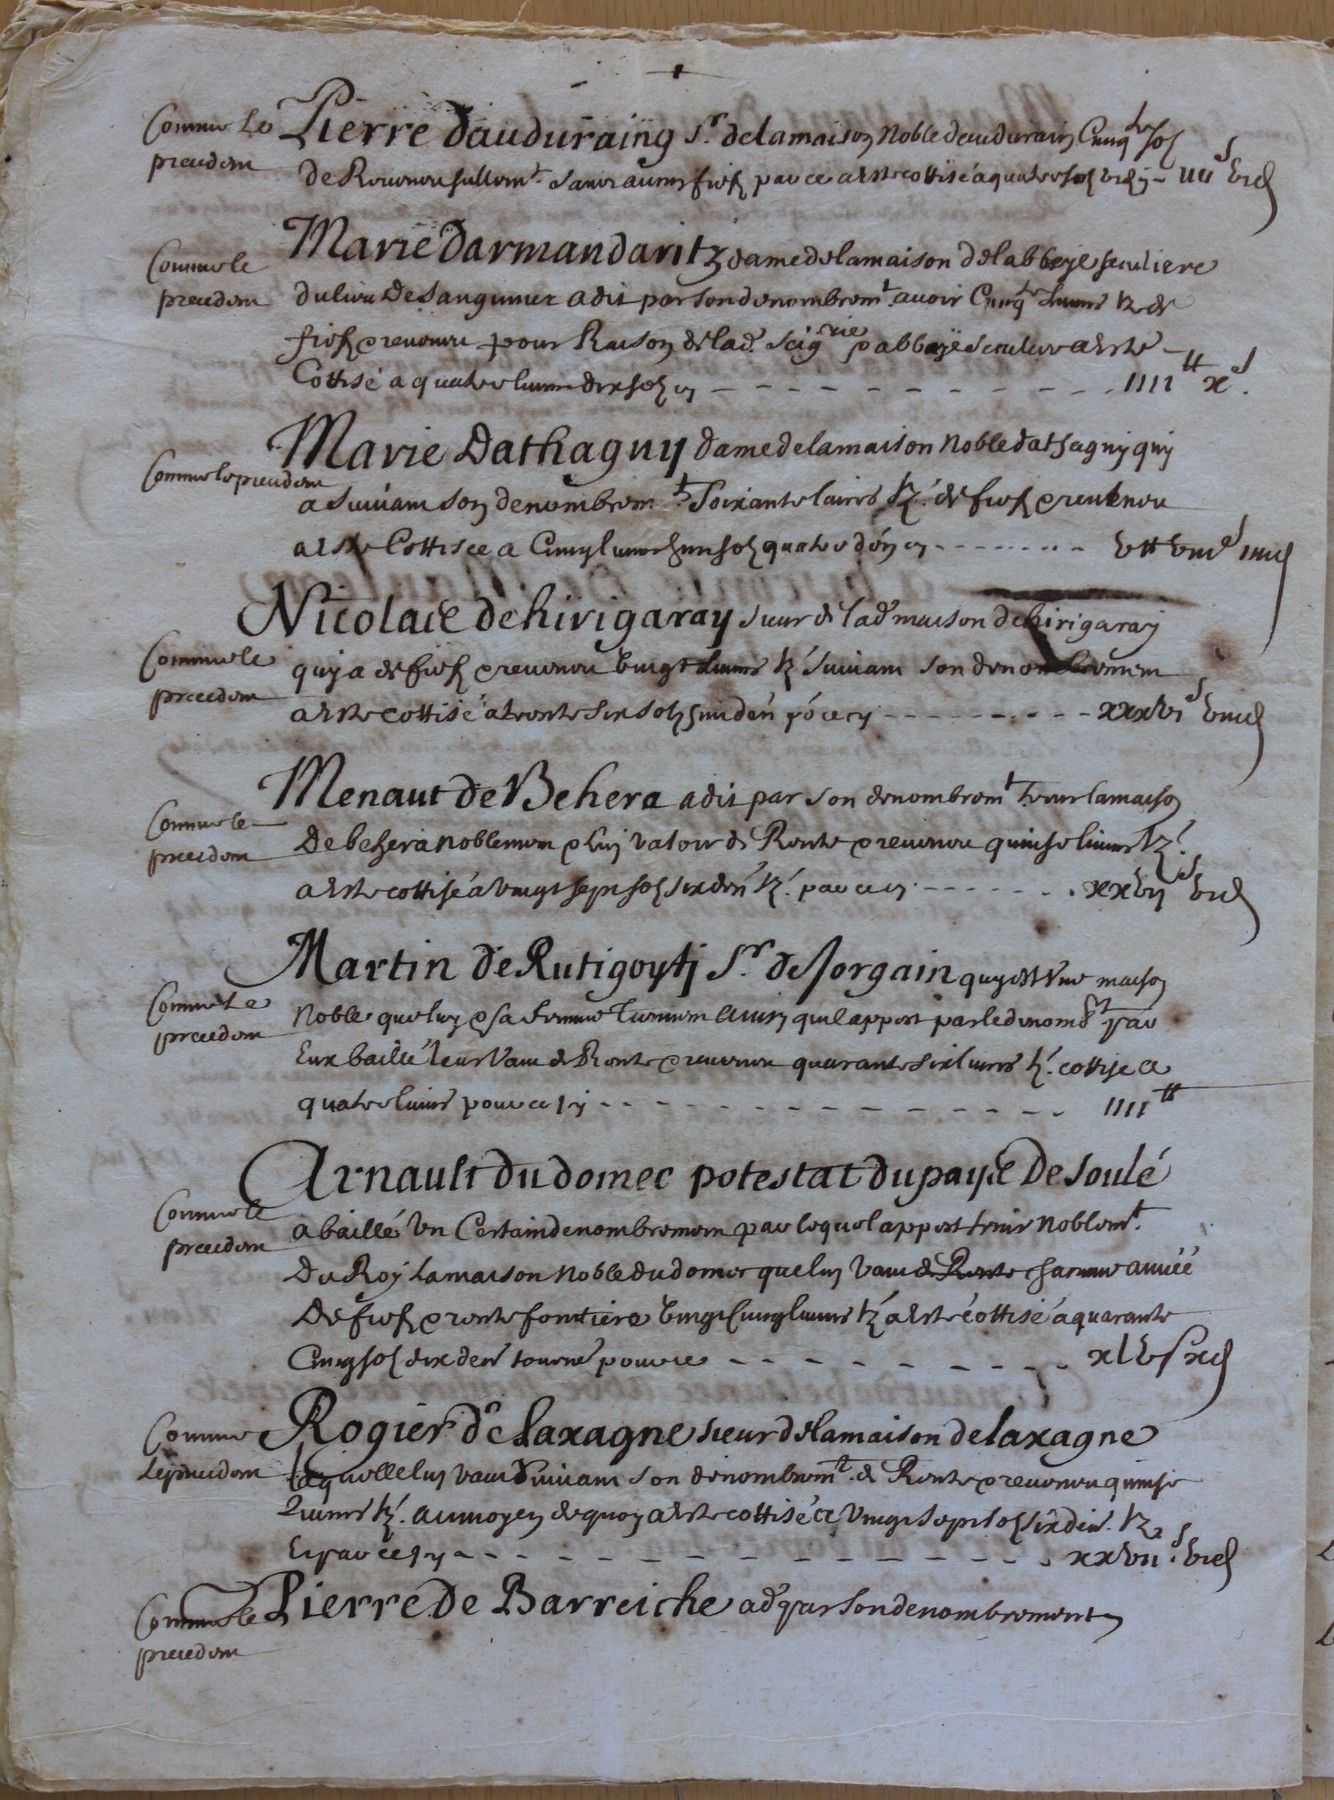 Comme le
precedem
Pierre dauduraing Sr. de la maison Noble daudurain Cinq sol
De Revenou sullemt. sans aucun fief par ce a este cottisé a quatre sol 6 d cy - IIII s VI d
Comme le
precedem
Marie Darmandaritz dame de la maison de labbeye seculiere
du lieu De Sangumer a dit par son denombremt. avoir Cinqte livres tz de
fief e revenou pour Raison de lad. seigrie e abbaye seculiere a este
Cottisé a quatre livres dix sol cy - - - - - - - IIII tt X s.
Comme le precedem
Marie Dathaguy dame de la maison Noble dathaguy quy
a suivam son denombremt. soixante livres tz. de fief e revenou
a este Cottisée a Cinq livres huit sol quatre den cy - - - - - - - V tt VIII s IIII d
Comme le
precedem
Nicolace dehirigaray sieur de lad maison dehirigaray
quy a de fief e revenou vingt livres tz suivam son denombremem
a este cottisé a trente six sol huit den po ce cy - - - - - - - XXXVI s VIII d
Comme le
precedem
Menaut de Behera a dit par son denombremt tenir la maison
De behera noblemem e luy valoir de Rente e revenou quinse livres tz.
a este cottisé a vingt sept sol six den tz. par ce cy - - - - - XXVII s VI d
Comme Le
precedem
Martin de Rutigoyti Sr. de Jorgain quy est Une maison
Noble que luy e sa femme tiennem ainsy quil appert par le denombt par
Eux baillé leur Vaut de Rente e revenou quarante six livres tz. cottisé a
quatre livres pour ce cy - - - - - - - - - IIII tt
Comme le
precedem
Arnault du domec potestat du paÿs De Soulé
a baillé Un Certain denombremem par lequel appert tenir Noblemt.
Du Roy La maison Noble du domec que luy Vaut de Rente chacune année
De fief e rente fontiere vingt cinq livres tz a este cottisé a quarante
Cinq sol dix den tourne pour ce - - - - - - - - XLV s X d
Comme
Le precedem
Rogier de laxagne sieur de la maison de laxagne
laquelle luy vaut suivam son denombremt. de Rente e revenou quinse
Livres tz. au moyen de quoy a este cottisé a vingt sept sol six den. tz
Et par ce cy - - - - - - - - - - XXVII s. VI d
Comme le
precedem
Pierre De Barreiche a d par son denombrement